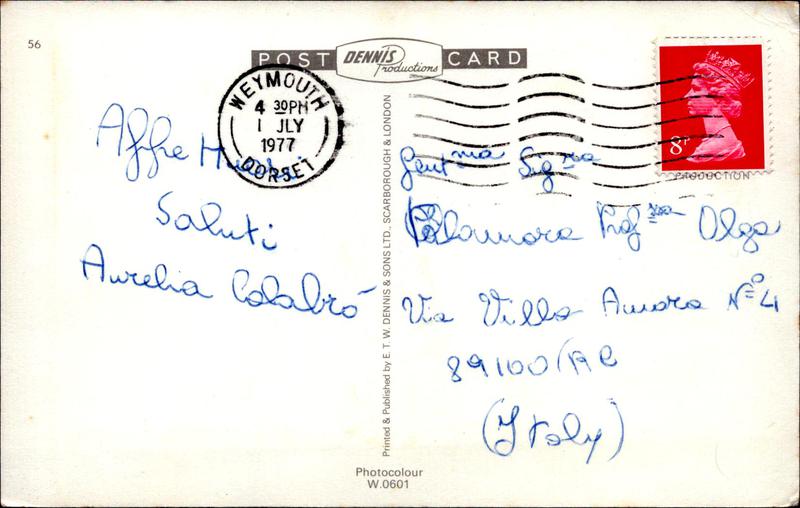 56
POST DENNIS Productions CARD
WEYMOUTH
4 30PM
1 JLY
1977
DORSET
8P
PRODUCTION
Affettuosi
Saluti
Aurelia Calabrò
Printed & Published by E. T. W. DENNIS & SONS LTD., SCARBOROUGH & LONDON
Gent.ma Sig.ra
Palamara Prof.ssa Olga
Via Villa Aurora N° 4
89100 (RC
(Italy)
Photocolour
W.0601